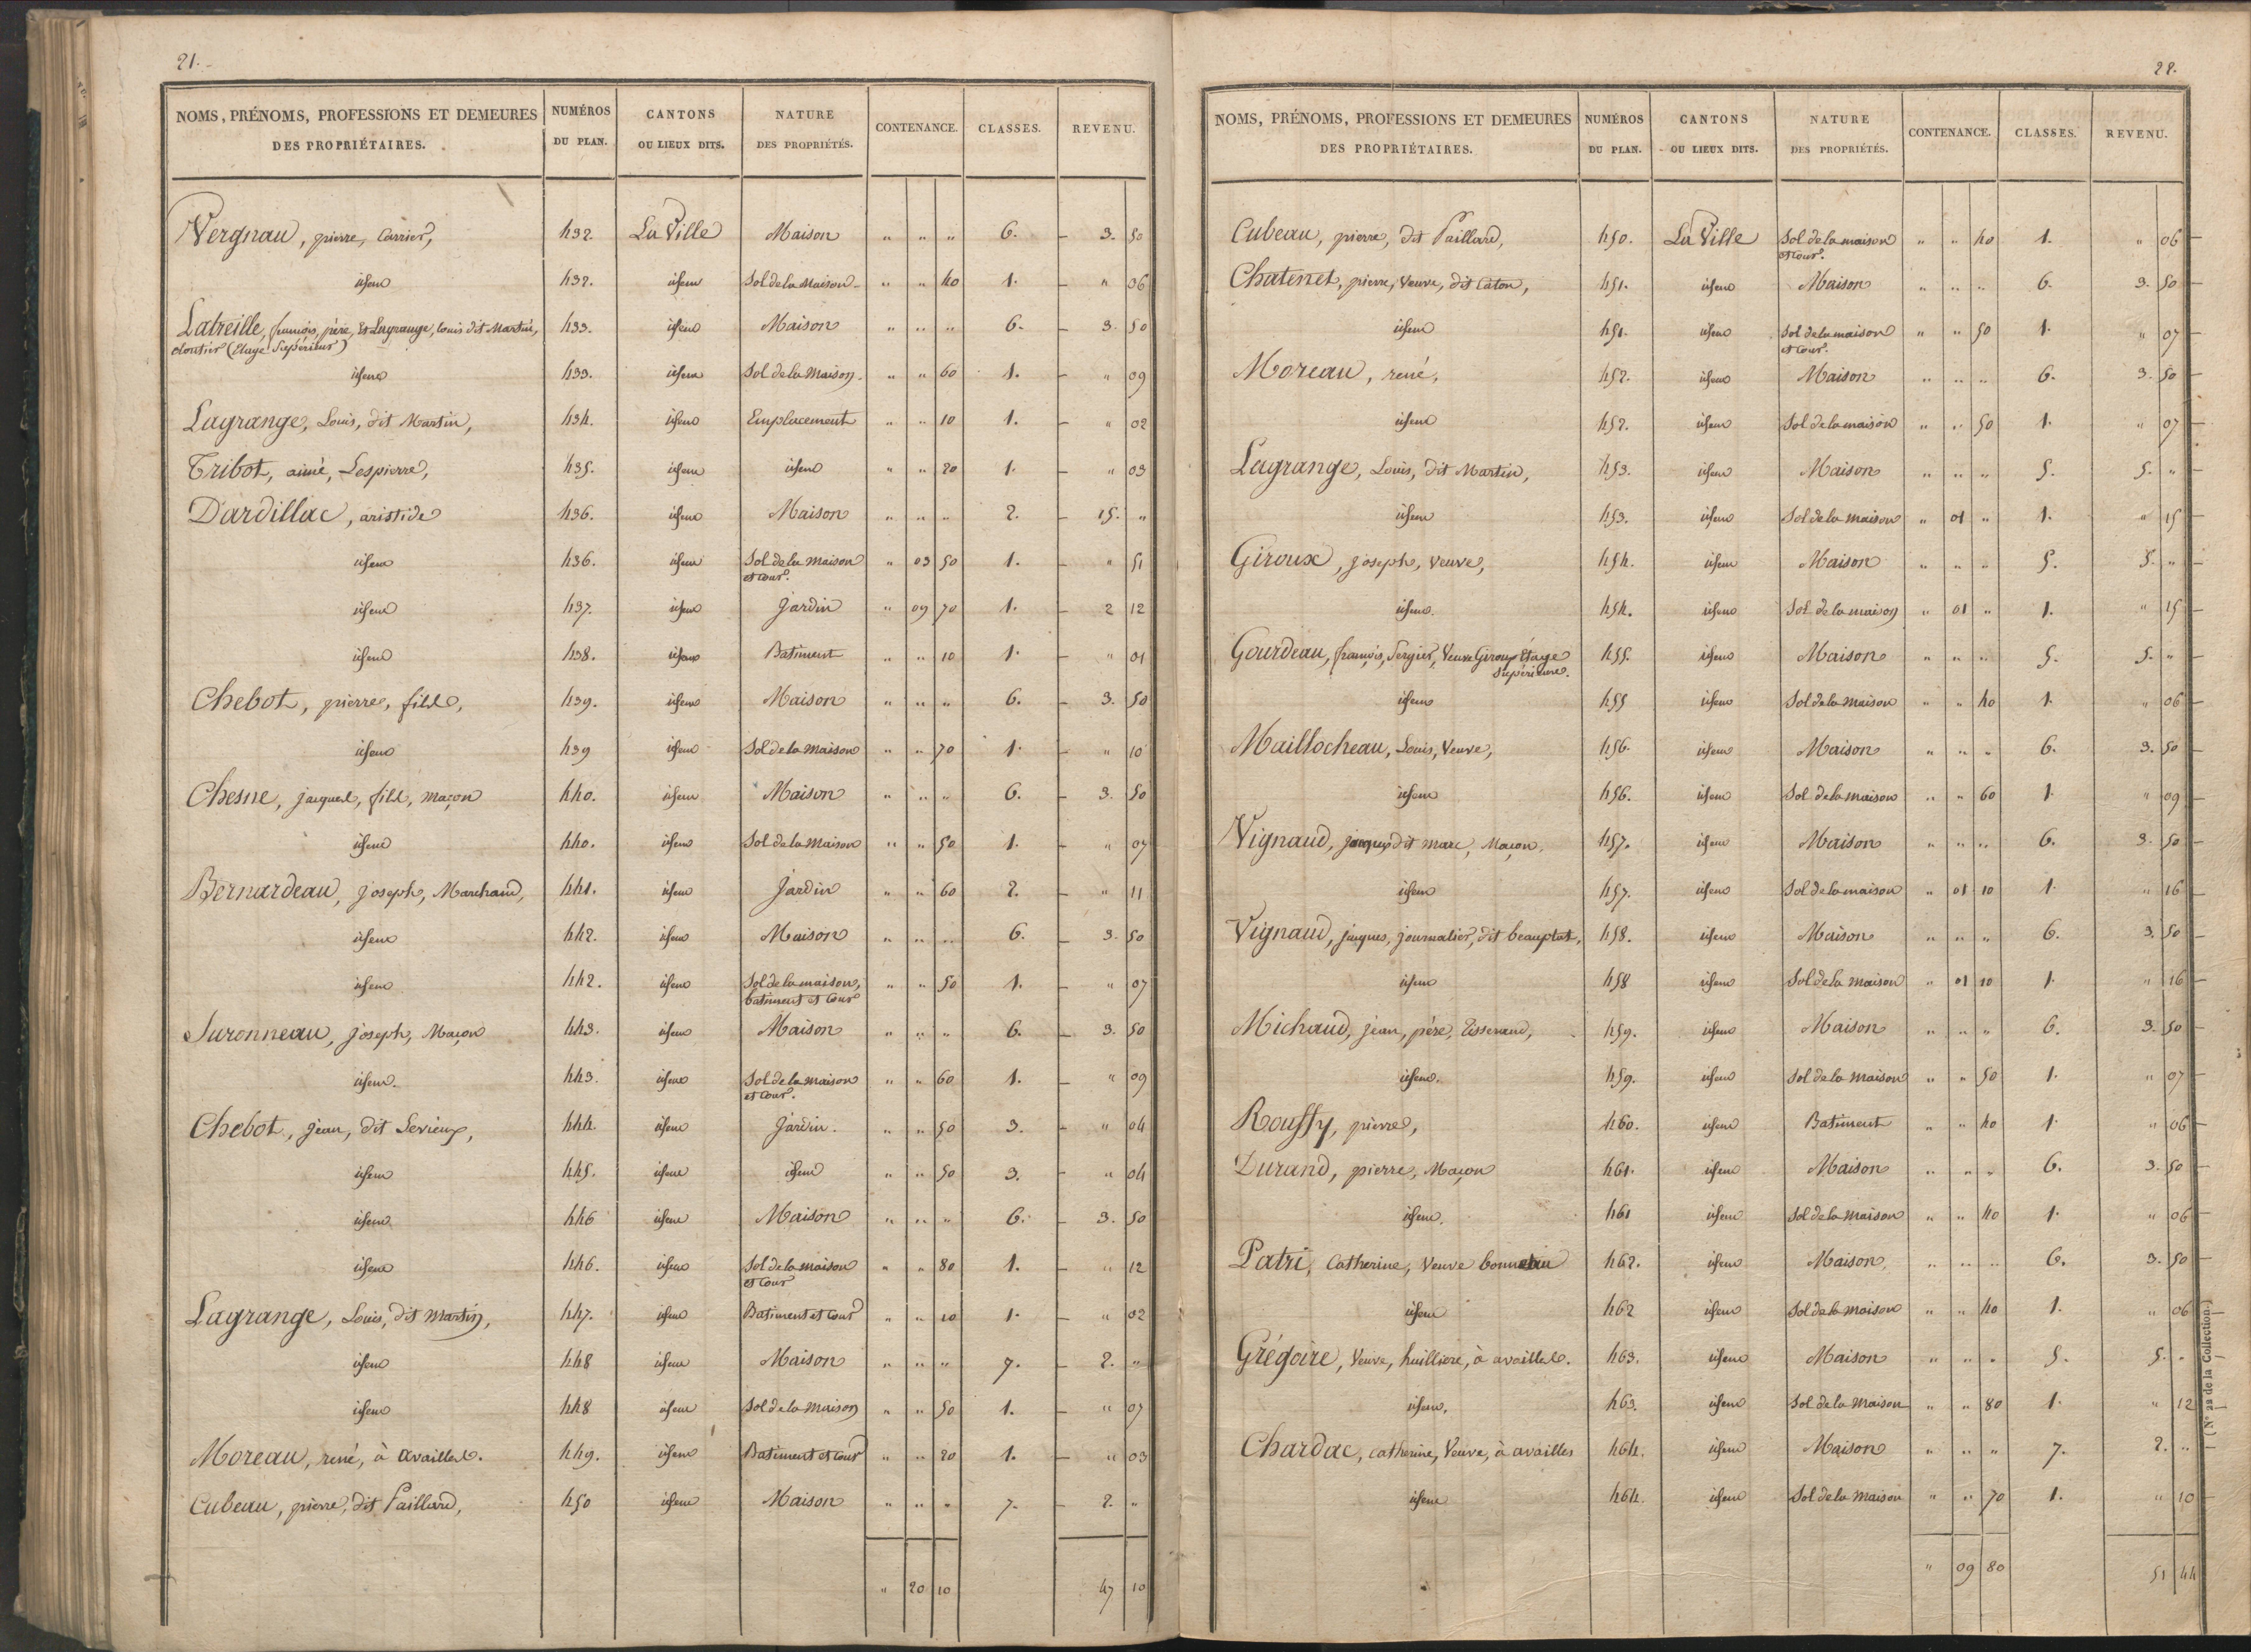 21.
NOMS, PRÉNOMS, PROFESSIONS ET DEMEURES DES PROPRIÉTAIRES. NUMÉROS DU PLAN. CANTONS OU LIEUX DITS. NATURE DES PROPRIÉTÉS. CONTENANCE. CLASSES. REVENU.
Vergnau, pierre, Carrier, 432. La Ville Maison " " " 6. 3. 50
idem 432. idem Sol de la Maison " " 40 1. " 06
Latreille, françois, père, et Lagrange, louis dit Martin, 433. idem Maison " " " 6. 3. 50
cloutier (Etage Supérieur)
idem 433. idem Sol de la Maison " " 60 1. " 09
Lagrange, Louis, dit Martin, 434. idem Emplacement " " 10 1. " 02
Tribot, aimé, Lespierre, 435. idem idem " " 20 1. " 03
Dardillac, aristide 436. idem Maison " " " 2. 15. "
idem 436. idem Sol de la Maison et cour. " 03 50 1. " 51
idem 437. idem Jardin " 09 70 1. 2 12
idem 438. idem Batiment " " 10 1. " 01
Chebot, pierre, fils, 439. idem Maison " " " 6. 3. 50
idem 439 idem Sol de la maison " " 70 1. " 10
Chesne, jacques, fils, maçon 440. idem Maison " " " 6. 3. 50
idem 440. idem Sol de la Maison " " 50 1. " 07
Bernardeau, joseph, Marchand, 441. idem Jardin " " 60 2. " 11
idem 442. idem Maison " " " 6. 3. 50
idem 442. idem Sol de la maison, batiment et cour " " 50 1. " 07
Suronneau, joseph, Maçon 443. idem Maison " " " 6. 3. 50
idem. 443. idem Sol de la maison et cour. " " 60 1. " 09
Chebot, jean, dit Serieux, 444. idem Jardin. " " 50 3. " 04
idem 445. idem idem " " 50 3. " 04
idem 446 idem Maison " " " 6. 3. 50
idem 446. idem Sol de la maison et cour " " 80 1. " 12
Lagrange, Louis, dit Martin, 447. idem Batiment et cour " " 10 1. " 02
idem 448 idem Maison " " " 7. 2. "
idem 448 idem Sol de la Maison " " 50 1. " 07
Moreau, rené, à availles. 449. idem Batiment et cour " " 20 1. " 03
Cubeau, pierre, dit Paillard, 450 idem Maison " " " 7. 2. "
" 20 10 47 10
22.
NOMS, PRÉNOMS, PROFESSIONS ET DEMEURES DES PROPRIÉTAIRES. NUMÉROS DU PLAN. CANTONS OU LIEUX DITS. NATURE DES PROPRIÉTÉS. CONTENANCE. CLASSES. REVENU.
Cubeau, pierre, dit Paillard, 450. La Ville Sol de la maison et cour. " " 40 1. " 06
Chatenet, pierre, Veuve, dit Caton, 451. idem Maison " " " 6. 3. 50
idem 451. idem Sol de la maison et cour. " " 50 1. " 07
Moreau, rené, 452. idem Maison " " " 6. 3. 50
idem 452. idem Sol de la maison " " 50 1. " 07
Lagrange, Louis, dit Martin, 453. idem Maison " " " 5. 5. "
idem 453. idem Sol de la maison " 01 " 1. " 15
Giroux, joseph, veuve, 454. idem Maison " " " 5. 5. "
idem. 454. idem Sol de la maison " 01 " 1. " 15
Gourdeau, françois, Sergier, Veuve Giroux Etage Supérieure. 455. idem Maison " " " 5. 5. "
idem 455 idem Sol de la Maison " " 40 1. " 06
Maillocheau, Louis, Veuve, 456. idem Maison " " " 6. 3. 50
idem 456. idem Sol de la maison " " 60 1. " 09
Vignaud, jacques dit marc, Maçon. 457. idem Maison " " " 6. 3. 50
idem 457. idem Sol de la maison " 01 10 1. " 16
Vignaud, jacques, journalier, dit beauplat, 458. idem Maison " " " 6. 3. 50
idem 458 idem Sol de la maison " 01 10 1. " 16
Michaud, jean, père, Tisserand, 459. idem Maison " " " 6. 3. 50
idem. 459. idem Sol de la maison " " 50 1. " 07
Rouffy, pierre, 460. idem Batiment " " 40 1. " 06
Durand, pierre, Maçon 461. idem Maison " " " 6. 3. 50
idem. 461 idem Sol de la maison " " 40 1. " 06
Patri, Catherine, Veuve 462. idem Maison " " " 6. 3. 50
idem 462 idem Sol de la maison " " 40 1. " 06
Grégoire, Veuve, huilliere, à availles. 463. idem Maison " " " 5. 5. "
idem. 463. idem Sol de la maison " " 80 1. " 12
Chardac, catherine, Veuve, à availles 464. idem Maison " " " 7. 2. "
idem 464. idem Sol de la maison " " 70 1. " 10
" 09 80 51 44
(N° 22 de la Collection.)